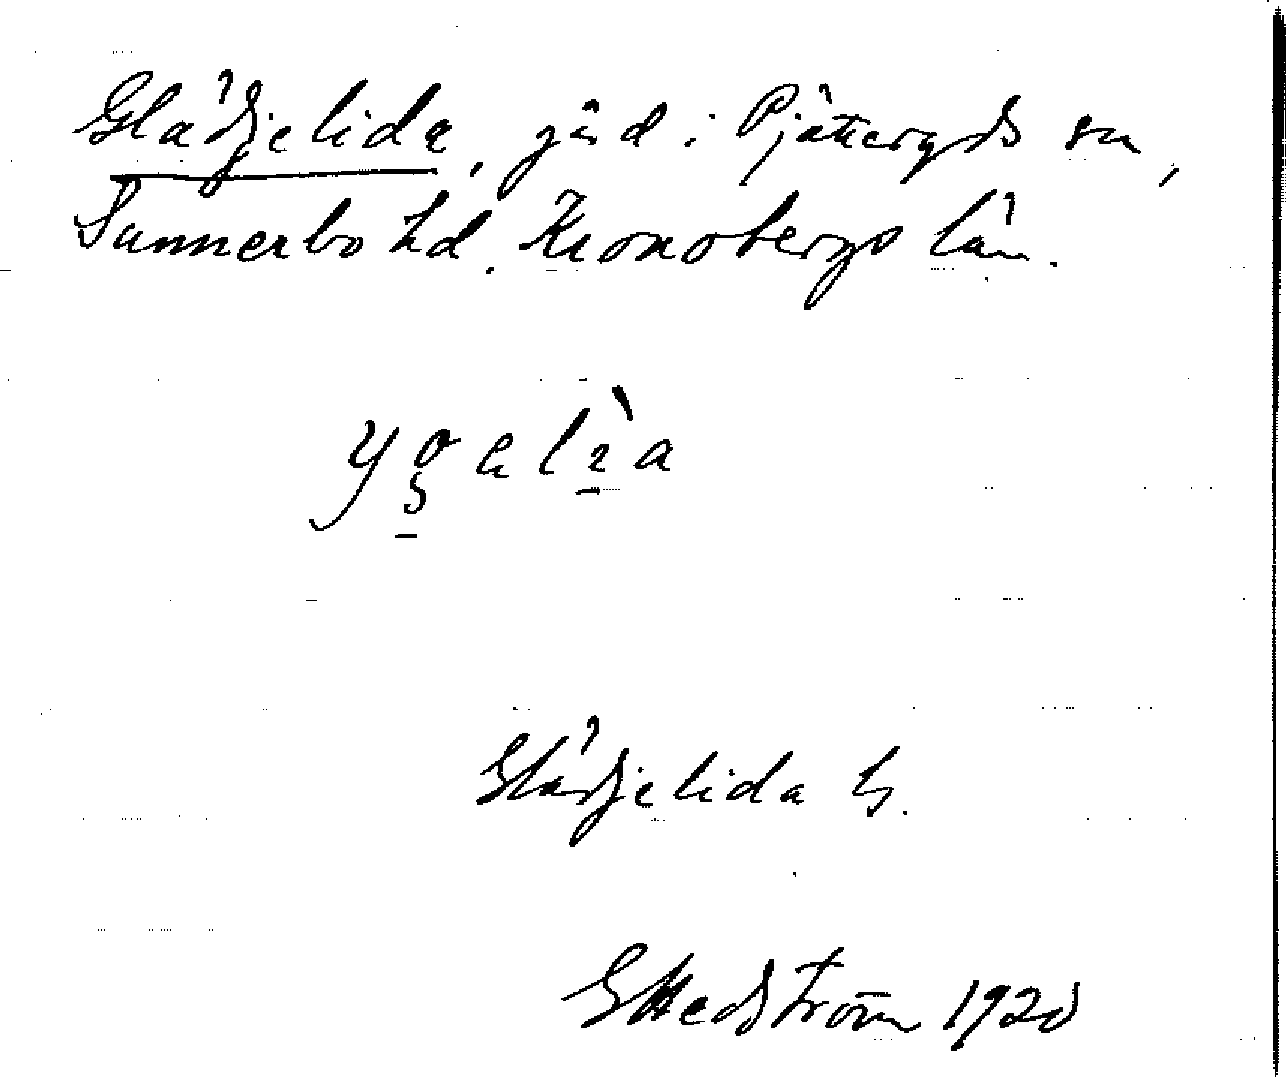 Glädjelida, gård i Pjätteryds sn,
Sunnerbo hd. Kronobergs län.
Glädjelida G.
G Hedström 1920